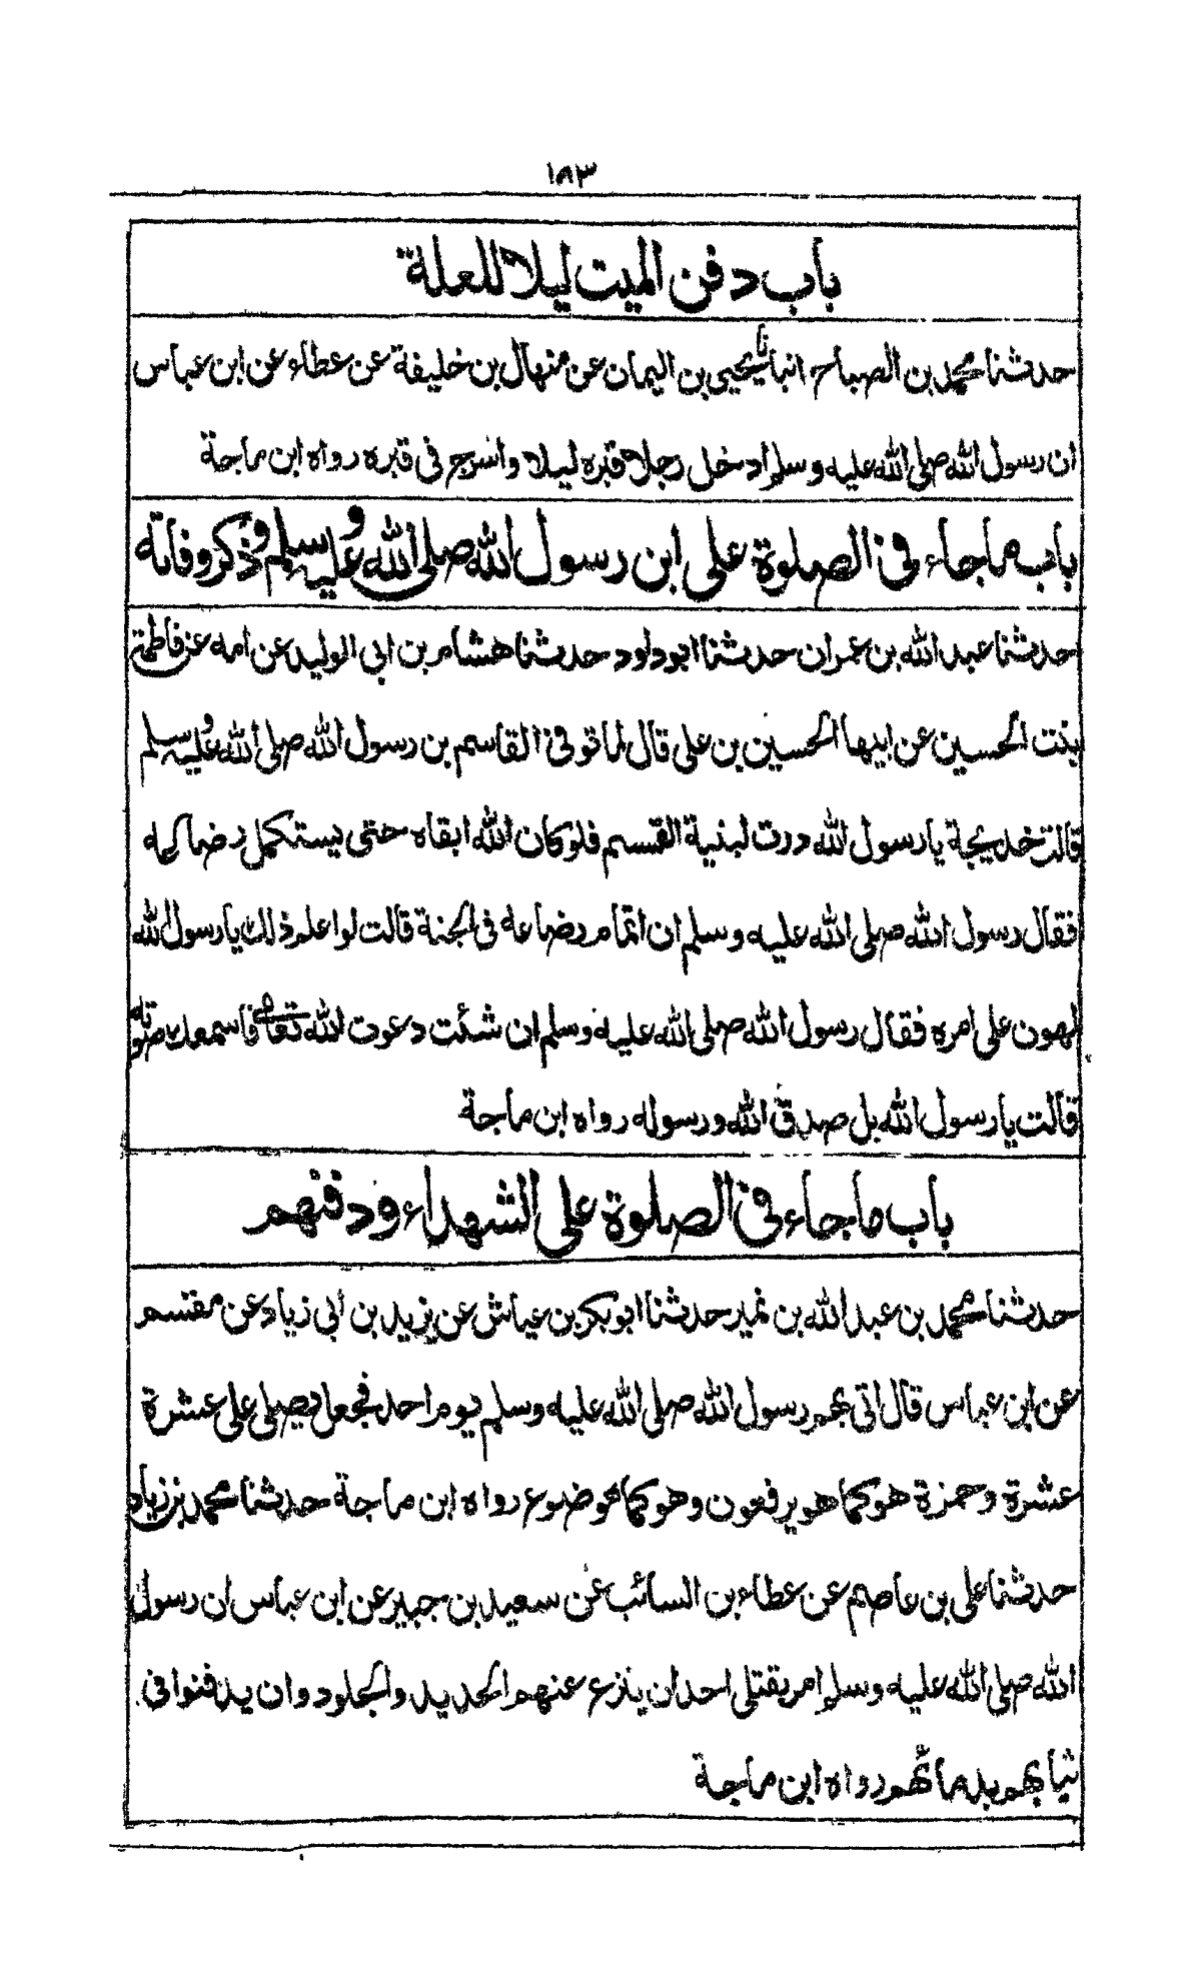 ١٨٣
باب دفن الميت ليلا للعلة
حدثنا محمد بن الصباح انبانا يحيى بن اليمان عن منهال بن خليفة عن عطاء عن ابن عباس
ان رسول الله صلى الله عليه وسلم ادخل رجلا قبره ليلا واسرج فى قبره رواه ابن ماجة
باب ماجاء فى الصلوة على ابن رسول الله صلى الله عليه وسلم وذكر وفاته
حدثنا عبد الله بن عمران حدثنا ابوداود حدثنا هشام بن ابى الوليد عن امه عن فاطمة
بنت الحسين عن ابيها الحسين بن على قال لما توفى القاسم بن رسول الله صلى الله عليه وسلم
قالت خديجة يا رسول الله درت لبنية القسم فلو كان الله ابقاه حتى يستكمل رضاعه
فقال رسول الله صلى الله عليه وسلم ان اتمام رضاعه فى الجنة قالت لو اعلم ذلك يا رسول الله
لهون على امره فقال رسول الله صلى الله عليه وسلم ان شئت دعوت الله تعالى فاسمعك صوته
قالت يا رسول الله بل صدق الله ورسوله رواه ابن ماجة
باب ماجاء فى الصلوة على الشهداء ودفنهم
حدثنا محمد بن عبد الله بن نمير حدثنا ابو بكر بن عياش عن يزيد بن أبي زياد عن مقسم
عن ابن عباس قال اتى بهم رسول الله صلى الله عليه وسلم يوم احد فجعل يصلى على عشرة
عشرة وحمزة هو كما هو يرفعون وهو كما هو موضوع رواه ابن ماجة حدثنا محمد بن زياد
حدثنا على بن عاصم عن عطاء بن السائب عن سعيد بن جبير عن ابن عباس ان رسول
الله صلى الله عليه وسلم امر بقتلى احد ان ينزع عنهم الحديد والجلود وان يدفنوا فى
ثيابهم بدمائهم رواه ابن ماجة